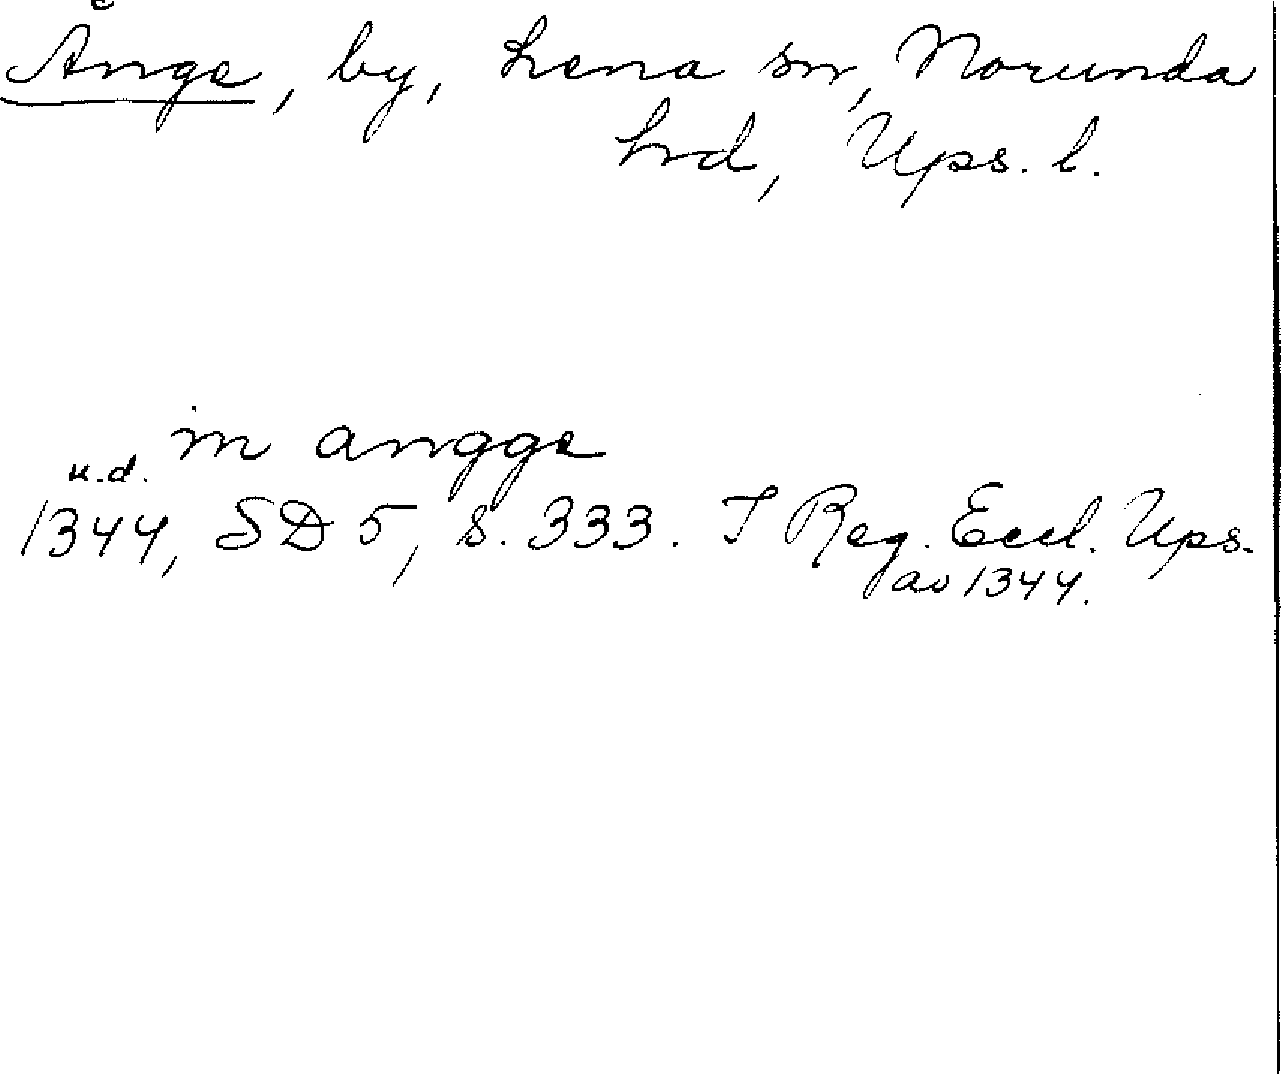 Ånge, by, Lena sn, Norunda
hrd, Ups. l.
in angge
u.d.
1344, SD 5, s. 333. I Reg. Eccl. Ups.
av 1344.